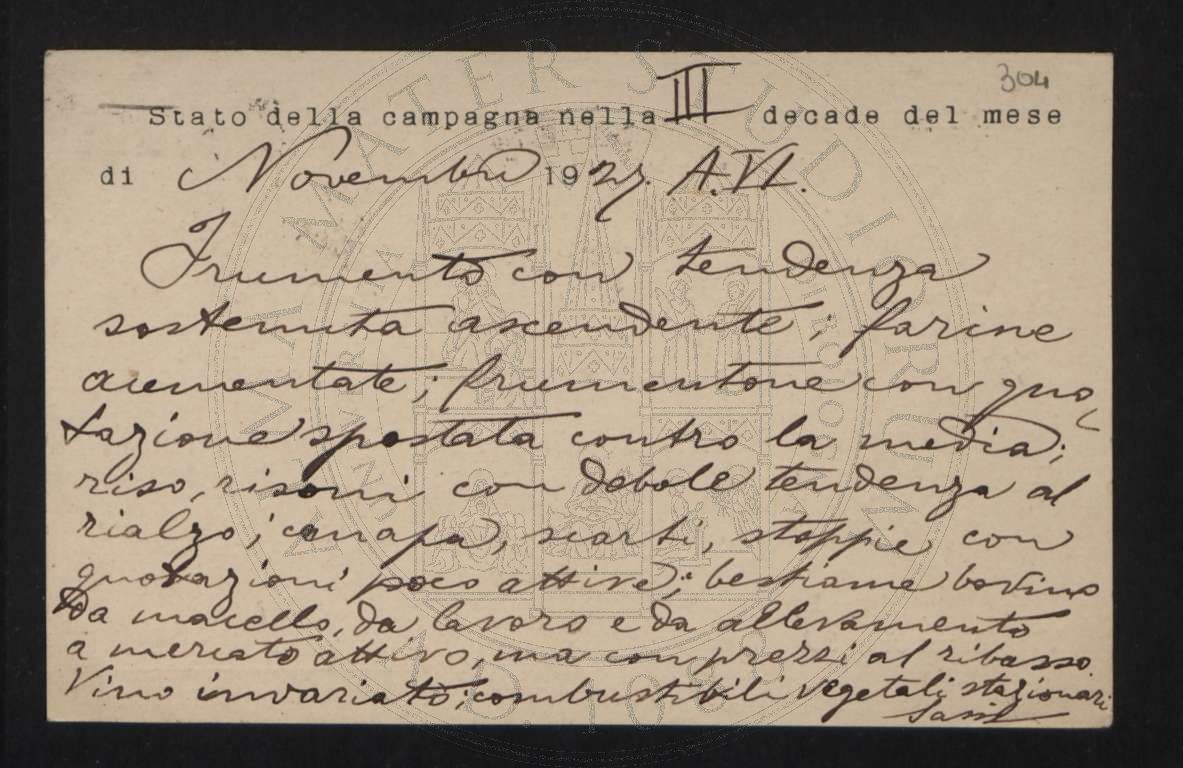 304
Stato della campagna nella III decade del mese
di Novembre 1927. A. VI.
Frumento con tendenza
sostenuta ascendente; farine
aumentate; frumentone con quo-
tazione spostata contro la media;
riso, risoni con debole tendenza al
rialzo; canapa, scarti, stoppie con
quotazioni poco attive; bestiame bovino
da macello, da lavoro e da allevamento
a mercato attivo, ma con prezzi al ribasso.
Vino invariato; combustibili vegetali stazionari
ALMA MATER STUDIORUM